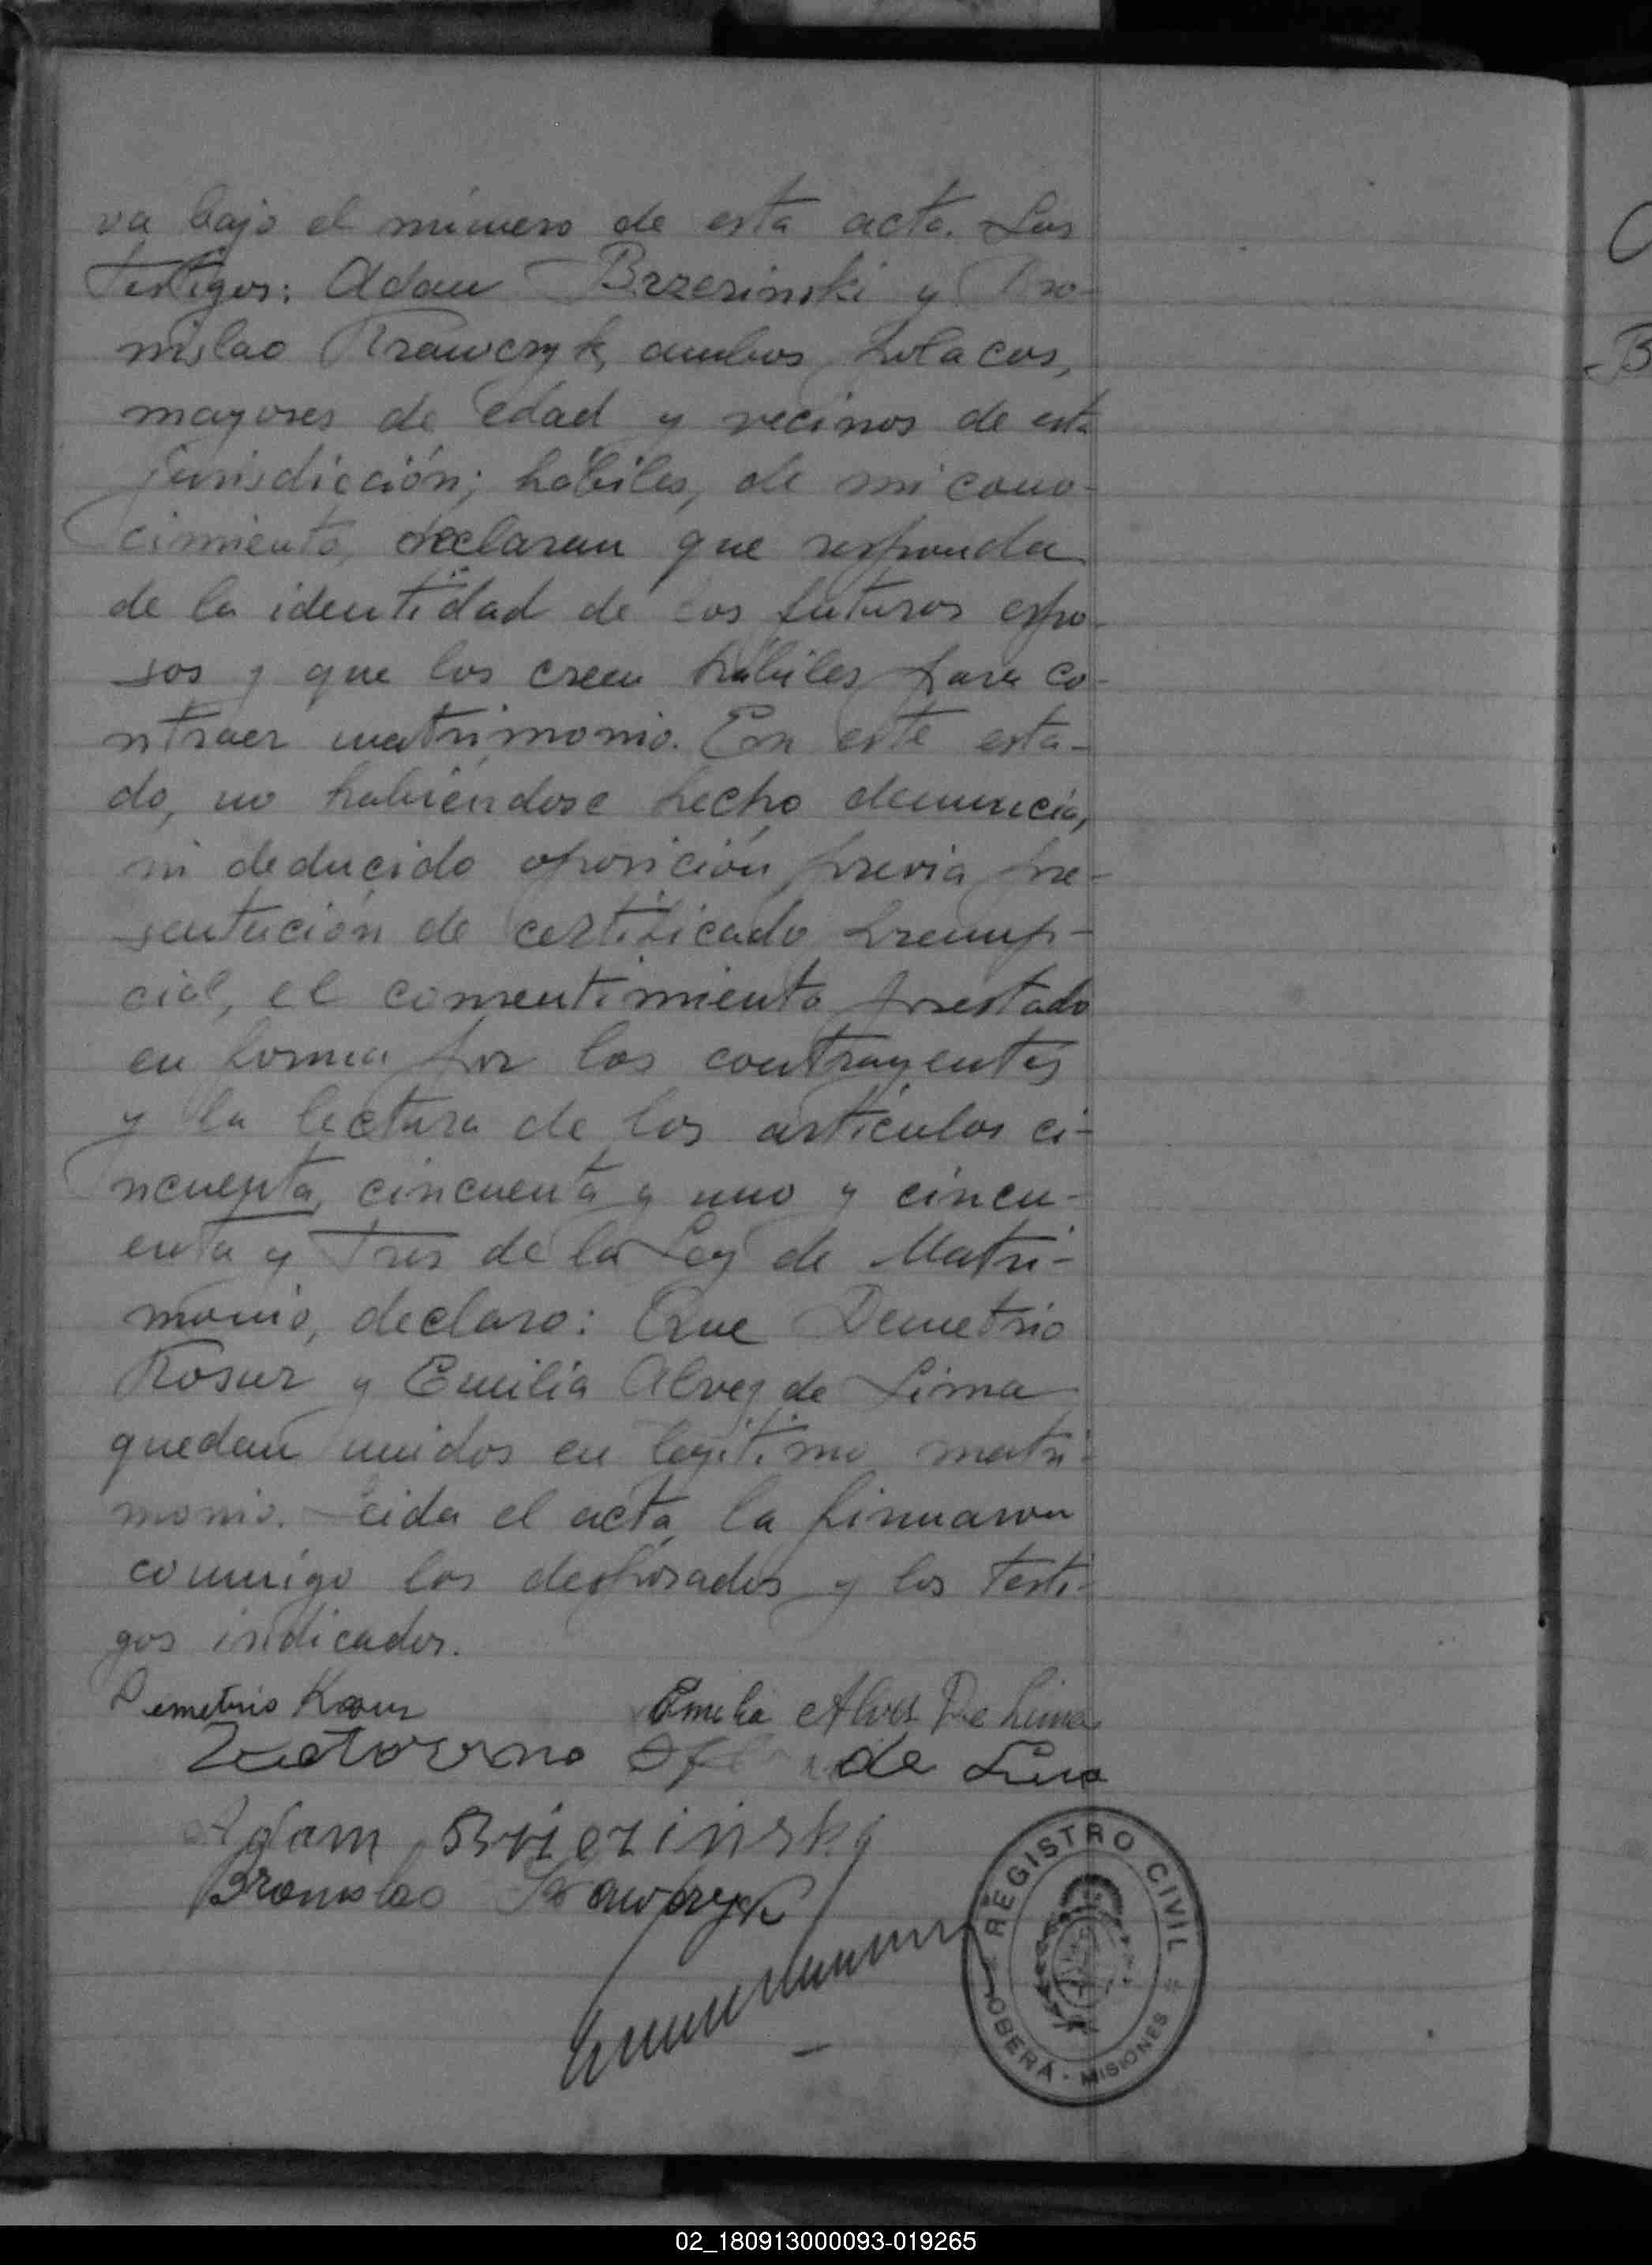 va bajo el número de esta acta. Los
testigos: Adan Brzezinski y Bro-
nislao Krawczyk, ambos polacos,
mayores de edad y vecinos de esta
jurisdicción; hábiles, de mi cono-
cimiento, declaran que responden
de la identidad de los futuros espo-
sos y que los creen hábiles para co-
ntraer matrimonio. En este esta-
do, no habiéndose hecho denuncia,
ni deducido oposición previa pre-
sentación de certificado prenup-
cial, el consentimiento prestado
en forma por los contrayentes
y la lectura de los artículos ci-
ncuenta, cincuenta y uno y cincu-
enta y tres de la Ley de Matri-
monio, declaro: Que Demetrio
Kosur y Emilia Alvez de Lima
quedan unidos en legítimo matri-
monio. Leida el acta, la firmaron
conmigo los desposados y los testi-
gos indicados.
Demetrio Emilia Alves De Lima
de Lima
Adam Brzezinski
Bronislao Krawczyk
REGISTRO CIVIL
OBERÁ - MISIONES
C
B
02_180913000093-019265